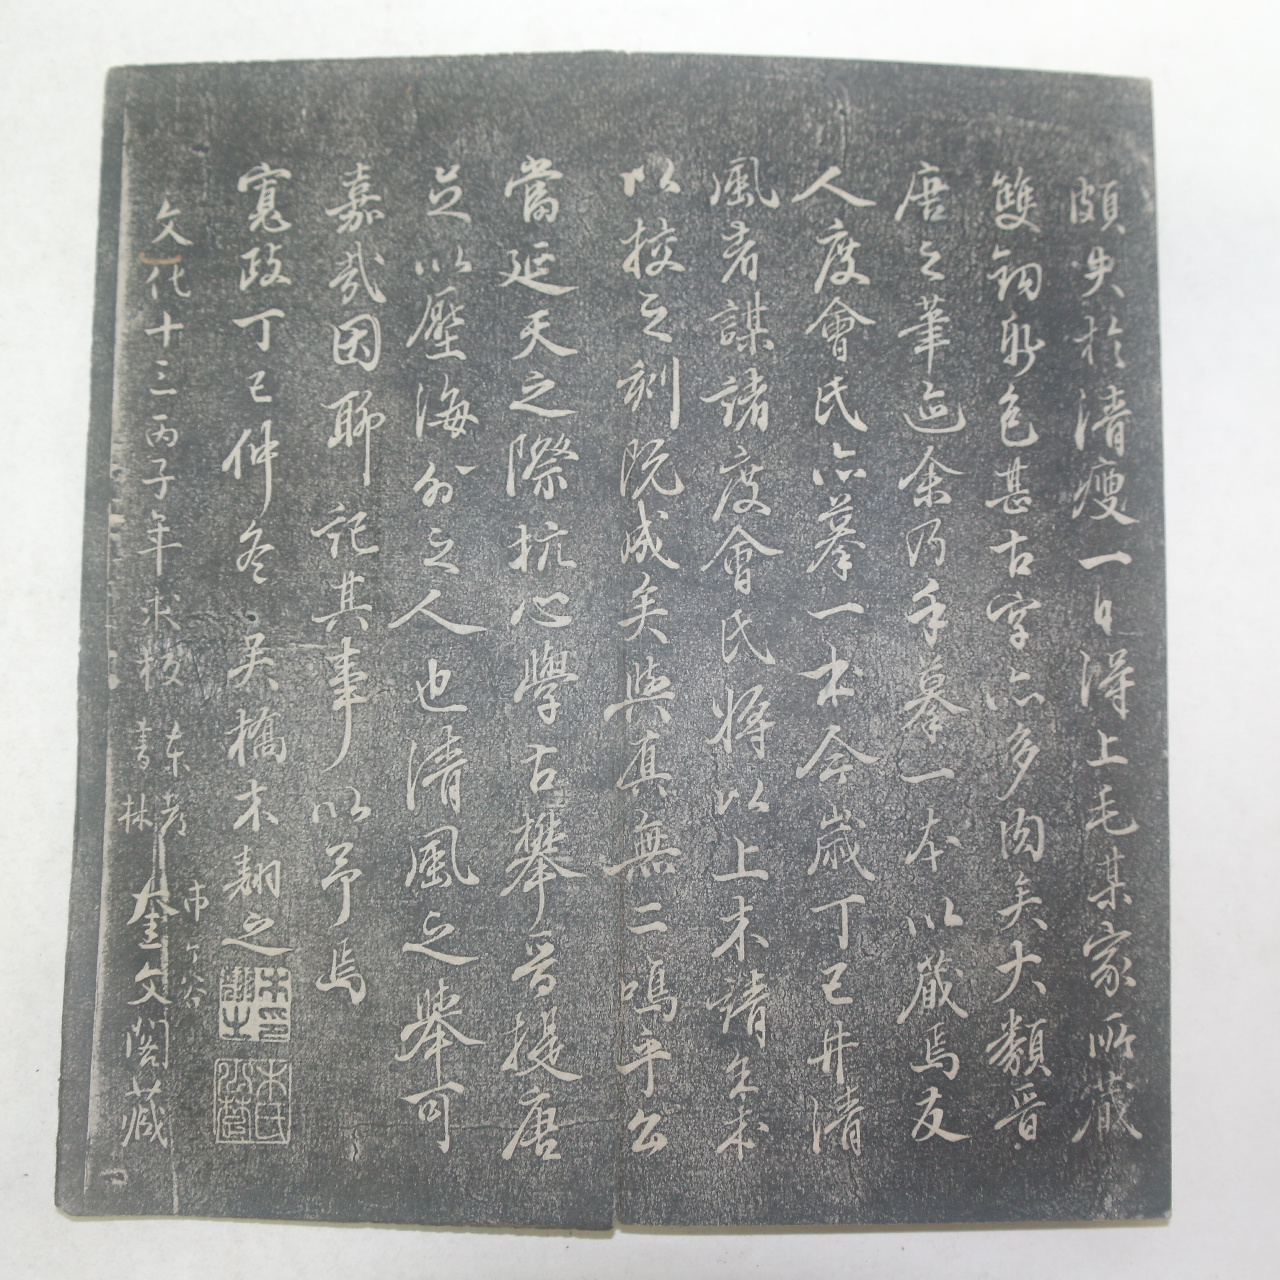 頗失於清瘦一日得上毛某家所藏
雙鉤
色甚古字亦多肉矣大類晉
唐之筆迹余乃手摹一本以藏焉友
人度會氏亦摹一本今歲丁巳井清
風者謀諸度會氏將以上木請余本
以挍之刻既成矣與真無二嗚乎公
當延天之際抗心學古攀晉提唐
足以壓海外之人也清風之舉可
嘉哉因聊記其事以予焉
寬政丁巳仲冬 吳橋木翤之
文化十三丙子年求板
書林
奎文閣藏
木氏